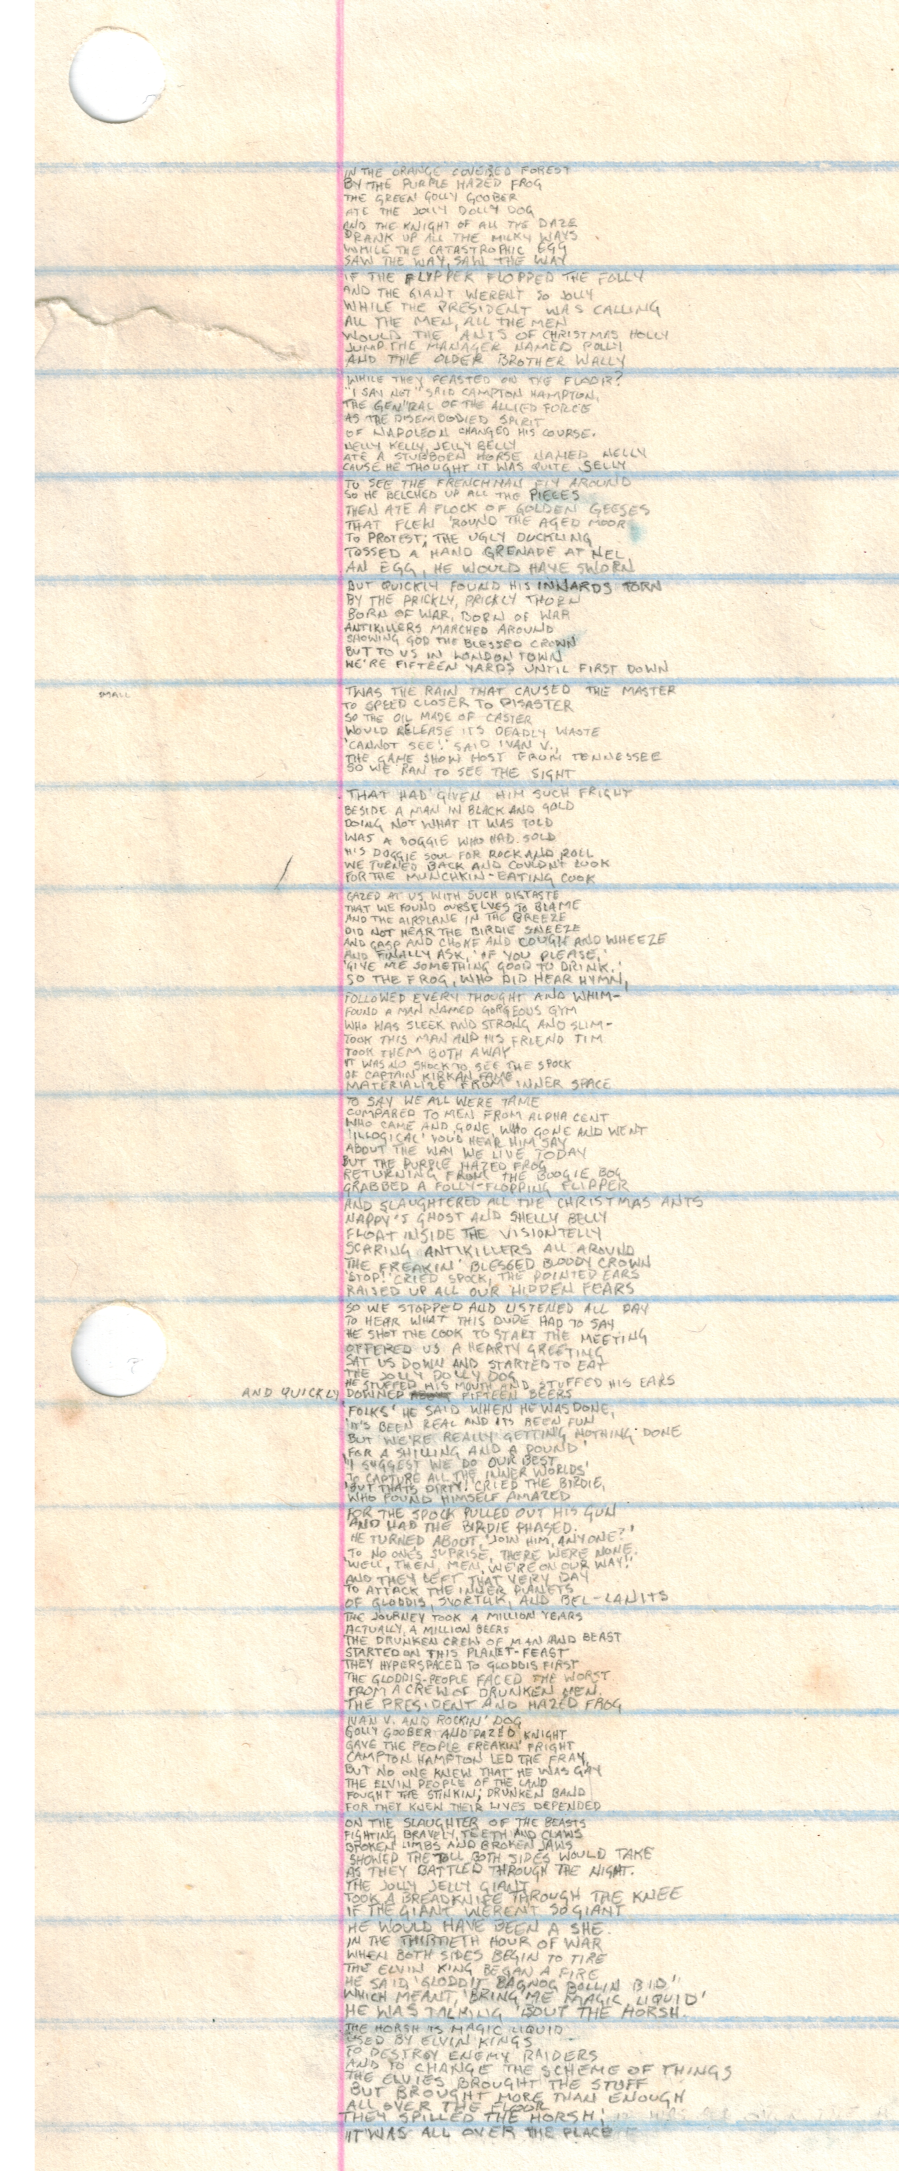 IN THE ORANGE COVERED FOREST
BY THE PURPLE HAZED FROG
THE GREEN GOLLY GOOBER
ATE THE JOLLY DOLLY DOG
AND THE KNIGHT OF ALL THE DAZE
DRANK UP ALL THE MILKY WAYS
WHILE THE CATASTROPHIC EGG
SAW THE WAY, SAW THE WAY
IF THE FLYPPER FLOPPED THE FOLLY
AND THE GIANT WERENT SO JOLLY
WHILE THE PRESIDENT WAS CALLING
ALL THE MEN, ALL THE MEN
WOULD THE ANTS OF CHRISTMAS HOLLY
JUMP THE MANAGER NAMED POLLY
AND THE OLDER BROTHER WALLY
WHILE THEY FEASTED ON THE FLOOR?
"I SAY NOT" SAID CAMPTON HAMPTON,
THE GEN'RAL OF THE ALLIED FORCE
AS THE DISEMBODIED SPIRIT
OF NAPOLEON CHANGED HIS COURSE.
NELLY KELLY, JELLY BELLY
ATE A STUBBORN HORSE NAMED NELLY
CAUSE HE THOUGHT IT WAS QUITE SELLY
TO SEE THE FRENCHMAN FLY AROUND
SO HE BELCHED UP ALL THE PIECES
THEN ATE A FLOCK OF GOLDEN GEESES
THAT FLEW 'ROUND THE AGED MOOR
TO PROTEST; THE UGLY DUCKLING
TOSSED A HAND GRENADE AT NEL,
AN EGG, HE WOULD HAVE SWORN
BUT QUICKLY FOUND HIS INNARDS TORN
BY THE PRICKLY, PRICKLY THORN
BORN OF WAR, BORN OF WAR
ANTIKILLERS MARCHED AROUND
SHOWING GOD THE BLESSED CROWN
BUT TO US IN LONDON TOWN
WE'RE FIFTEEN YARDS UNTIL FIRST DOWN
SMALL
TWAS THE RAIN THAT CAUSED THE MASTER
TO SPEED CLOSER TO DISASTER
SO THE OIL MADE OF CASTER
WOULD RELEASE ITS DEADLY WASTE
'CANNOT SEE!' SAID IVAN V.,
THE GAME SHOW HOST FROM TENNESSEE
SO WE RAN TO SEE THE SIGHT
THAT HAD GIVEN HIM SUCH FRIGHT
BESIDE A MAN IN BLACK AND GOLD
DOING NOT WHAT IT WAS TOLD
WAS A DOGGIE WHO HAD SOLD
HIS DOGGIE SOUL FOR ROCK AND ROLL
WE TURNED BACK AND COULDN'T LOOK
FOR THE MUNCHKIN-EATING COOK
GAZED AT US WITH SUCH DISTASTE
THAT WE FOUND OURSELVES TO BLAME
AND THE AIRPLANE IN THE BREEZE
DID NOT HEAR THE BIRDIE SNEEZE
AND GASP AND CHOKE AND COUGH AND WHEEZE
AND FINALLY ASK, 'IF YOU PLEASE,'
'GIVE ME SOMETHING GOOD TO DRINK.'
SO THE FROG, WHO DID HEAR HYMN,
FOLLOWED EVERY THOUGHT AND WHIM-
FOUND A MAN NAMED GORGEOUS GYM
WHO WAS SLEEK AND STRONG AND SLIM-
TOOK THIS MAN AND HIS FRIEND TIM
TOOK THEM BOTH AWAY
IT WAS NO SHOCK TO SEE THE SPOCK
OF CAPTAIN KIRKAN FAME
MATERIALIZE FROM INNER SPACE
TO SAY WE ALL WERE TAME
COMPARED TO MEN FROM ALPHA CENT
WHO CAME AND GONE, WHO GONE AND WENT
'ILLOGICAL' YOU'D HEAR HIM SAY
ABOUT THE WAY WE LIVE TODAY
BUT THE PURPLE HAZED FROG
RETURNING FROM THE BOOGIE BOG
GRABBED A FOLLY-FLOPPING FLIPPER
AND SLAUGHTERED ALL THE CHRISTMAS ANTS
NAPPY'S GHOST AND SHELLY BELLY
FLOAT INSIDE THE VISIONTELLY
SCARING ANTIKILLERS ALL AROUND
THE FREAKIN' BLESSED BLOODY CROWN
'STOP!' CRIED SPOCK, THE POINTED EARS
RAISED UP ALL OUR HIDDEN FEARS
SO WE STOPPED AND LISTENED ALL DAY
TO HEAR WHAT THIS DUDE HAD TO SAY
HE SHOT THE COOK TO START THE MEETING
OFFERED US A HEARTY GREETING
SAT US DOWN AND STARTED TO EAT
THE JOLLY DOLLY DOG
HE STUFFED HIS MOUTH AND STUFFED HIS EARS
AND QUICKLY DOWNED FIFTEEN BEERS
'FOLKS' HE SAID WHEN HE WAS DONE,
'IT'S BEEN REAL AND ITS BEEN FUN
BUT WE'RE REALLY GETTING NOTHING DONE
FOR A SHILLING AND A POUND'
'I SUGGEST WE DO OUR BEST
TO CAPTURE ALL THE INNER WORLDS'
'BUT THATS DIRTY!' CRIED THE BIRDIE,
WHO FOUND HIMSELF AMAZED
FOR THE SPOCK PULLED OUT HIS GUN
AND HAD THE BIRDIE PHASED.
HE TURNED ABOUT 'JOIN HIM, ANYONE?'
TO NO ONES SUPRISE, THERE WERE NONE.
'WELL, THEN, MEN, WE'RE ON OUR WAY!'
AND THEY LEFT THAT VERY DAY
TO ATTACK THE INNER PLANETS
OF GLODDIS, SVORTLIK, AND BEL-LANITS
THE JOURNEY TOOK A MILLION YEARS
ACTUALLY, A MILLION BEERS
THE DRUNKEN CREW OF MAN AND BEAST
STARTED ON THIS PLANET-FEAST
THEY HYPERSPACED TO GLODDIS FIRST
THE GLODDIS-PEOPLE FACED THE WORST
FROM A CREW OF DRUNKEN MEN.
THE PRESIDENT AND HAZED FROG
IVAN V. AND ROCKIN' DOG
GOLLY GOOBER AND DAZED KNIGHT
GAVE THE PEOPLE FREAKIN' FRIGHT
CAMPTON HAMPTON LED THE FRAY,
BUT NO ONE KNEW THAT HE WAS GAY
THE ELVIN PEOPLE OF THE LAND
FOUGHT THE STINKIN', DRUNKEN BAND
FOR THEY KNEW THEIR LIVES DEPENDED
ON THE SLAUGHTER OF THE BEASTS
FIGHTING BRAVELY, TEETH AND CLAWS
BROKEN LIMBS AND BROKEN JAWS
SHOWED THE TOLL BOTH SIDES WOULD TAKE
AS THEY BATTLED THROUGH THE NIGHT.
THE JOLLY JELLY GIANT
TOOK A BREADKNIFE THROUGH THE KNEE
IF THE GIANT WEREN'T SO GIANT
HE WOULD HAVE BEEN A SHE.
IN THE THIRTIETH HOUR OF WAR
WHEN BOTH SIDES BEGIN TO TIRE
THE ELVIN KING BEGAN A FIRE
HE SAID 'GLODDIT BAGNOG BOLLIN BID'
WHICH MEANT, 'BRING ME MAGIC LIQUID'
HE WAS TALKING 'BOUT THE HORSH.
THE HORSH IS MAGIC LIQUID
USED BY ELVIN KINGS
TO DESTROY ENEMY RAIDERS
AND TO CHANGE THE SCHEME OF THINGS
THE ELVIES BROUGHT THE STUFF
BUT BROUGHT MORE THAN ENOUGH
ALL OVER THE FLOOR
THEY SPILLED THE HORSH;
IT WAS ALL OVER THE PLACE